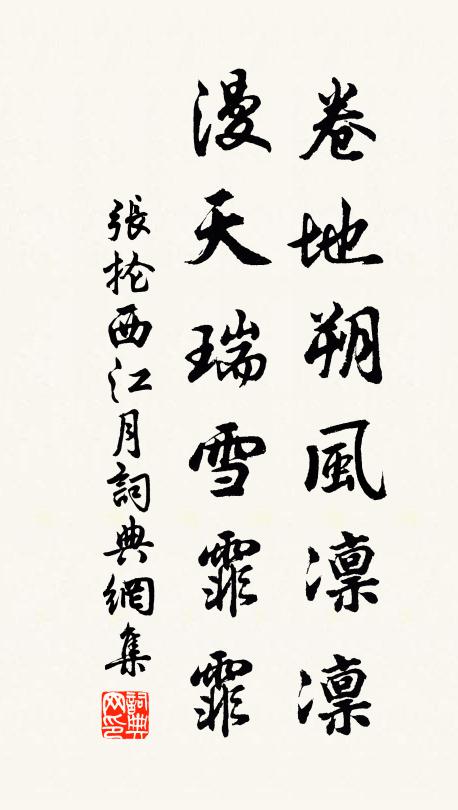 卷地朔風凛凛
漫天瑞雪霏霏
張抡西江月詞典網集
詞典网印